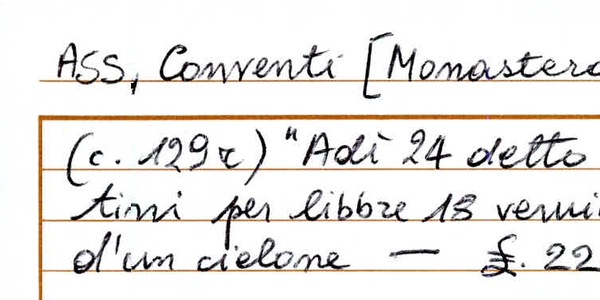 ASS, Conventi [Monastero
(c. 129r) "Adì 24 detto
tini per libbre 18 verni
d'un cielone — £. 22